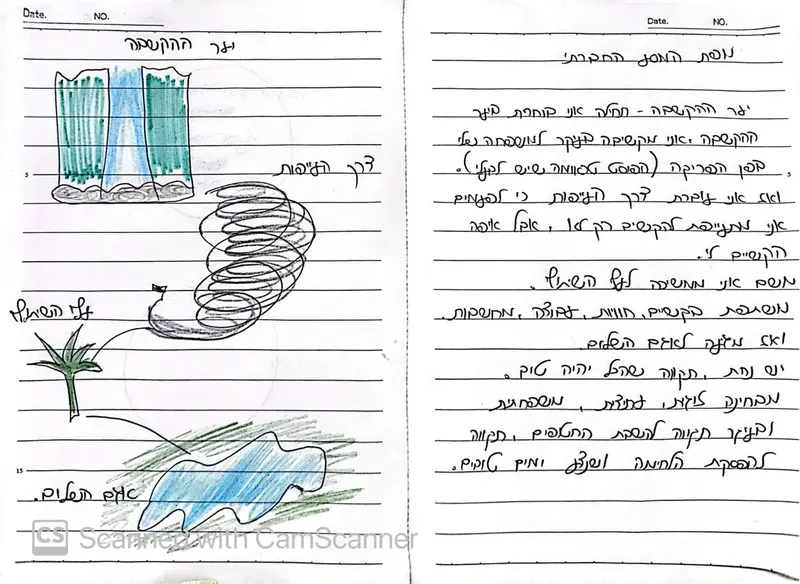 Date. NO.
יער ההקשבה
דרך העייפות
עץ השיתוף
אגם השלום.
CS Scanned with CamScanner
Date. NO.
מפת המסע החברתי
יער ההקשבה - תחילה אני בוחרת ביער
ההקשבה. אני מקשיבה בעיקר למשפחה שלי
בפן הפריקה (הפוסט טראומה שיש לבעלי).
ואז אני עוברת דרך העייפות כי לפעמים
אני מתעייפת להקשיב רק לו, אבל איפה
הקשיים לי.
משם אני ממשיכה לעץ השיתוף.
משתפת בקשיים, חוויות, עבודה, מחשבות.
ואז מגיעה לאגם השלום.
יש נחת, תקווה שהכל יהיה טוב.
מבחינה זוגית, עבודה, משפחתית
ובעיקר תקווה להשבת החטופים, תקווה
להפסקת הלחימה ושנדע ימים טובים.